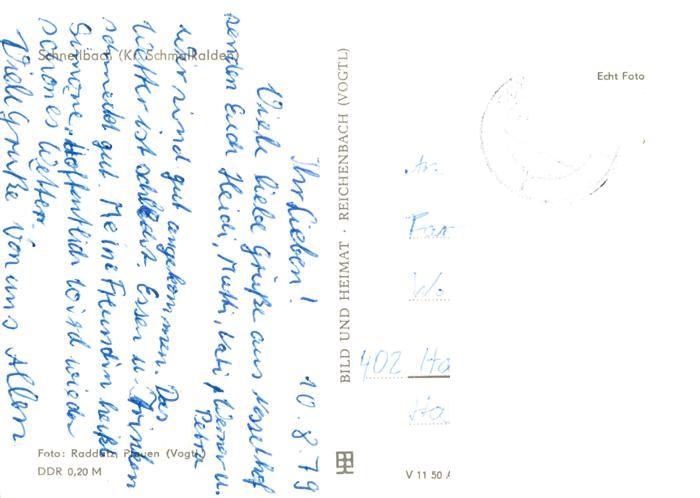 Schnellbach (Kr. Schmalkalden)
10.8.79
Ihr Lieben!
Viele liebe Grüße aus Nesselhof
senden Euch Heidi, Mutti, Vati, Werner u.
Petra
wir sind gut angekommen. Das
Wetter ist schlecht. Essen u. Trinken
schmeckt gut. Meine Freundin heißt
Simone. Hoffentlich wird wieder
schönes Wetter.
Viele Grüße von uns Allen
Foto: Raddatz, Plauen (Vogtl.)
DDR 0,20 M
BILD UND HEIMAT · REICHENBACH (VOGTL)
Echt Foto
Fam
402 Ha
Ha
V 11 50 A